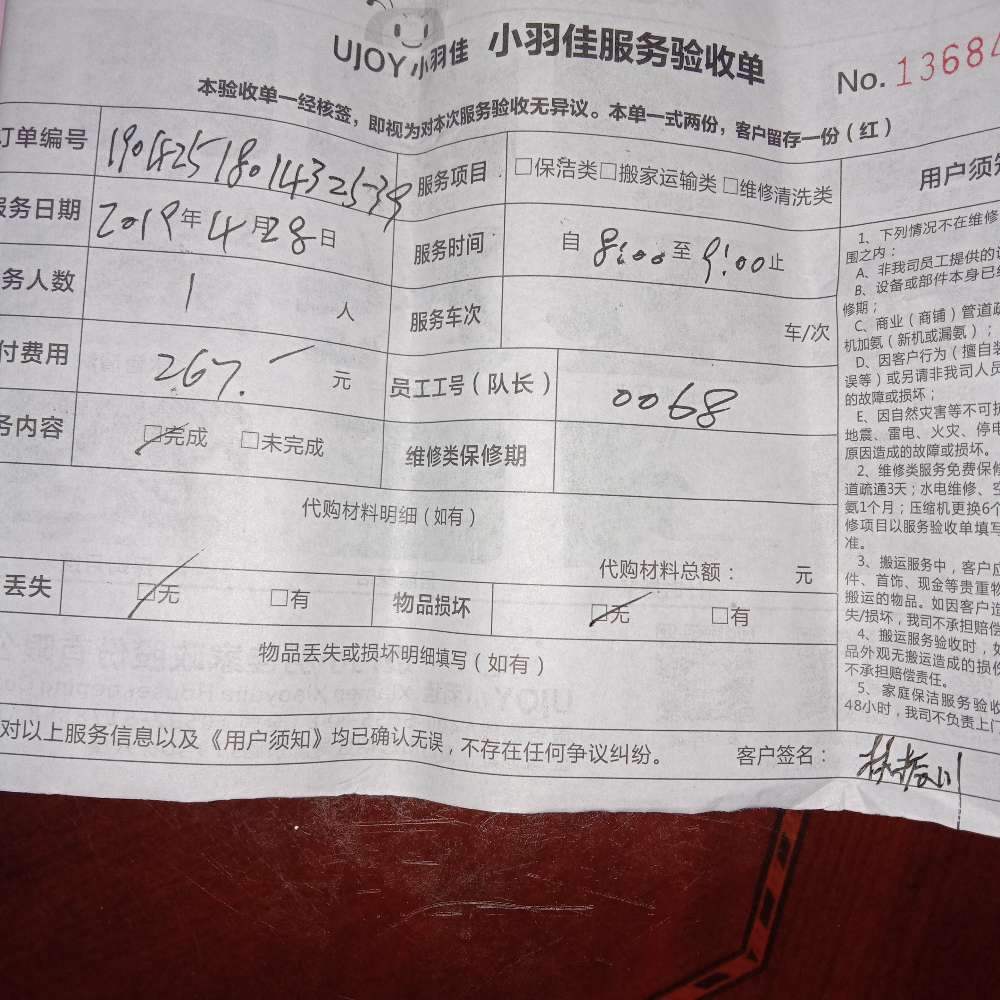 UJOY小羽佳 小羽佳服务验收单
No. 13684
本验收单一经核签，即视为对本次服务验收无异议。本单一式两份，客户留存一份（红）
订单编号 190425180143253 服务项目 □保洁类□搬家运输类□维修清洗类
服务日期 2019年4月28日 服务时间 自 8:00 至 9:00 止
务人数 1 人 服务车次 车/次
付费用 267. 元 员工工号（队长） 0068
务内容 □完成 □未完成 维修类保修期
代购材料明细（如有）
代购材料总额： 元
丢失 □无 □有 物品损坏 □无 □有
物品丢失或损坏明细填写（如有）
对以上服务信息以及《用户须知》均已确认无误，不存在任何争议纠纷。 客户签名：
用户须知
1、下列情况不在维修
围之内：
A、非我司员工提供的
B、设备或部件本身已
修期；
C、商业（商铺）管道疏
机加氨（新机或漏氨）；
D、因客户行为（擅自
误等）或另请非我司人员
的故障或损坏；
E、因自然灾害等不可抗
地震、雷电、火灾、停电
原因造成的故障或损坏。
2、维修类服务免费保修
道疏通3天；水电维修、空
氨1个月；压缩机更换6个
修项目以服务验收单填写
准。
3、搬运服务中，客户应
件、首饰、现金等贵重物
搬运的物品。如因客户造
失/损坏，我司不承担赔偿
4、搬运服务验收时，如
品外观无搬运造成的损伤
不承担赔偿责任。
5、家庭保洁服务验收
48小时，我司不负责上门